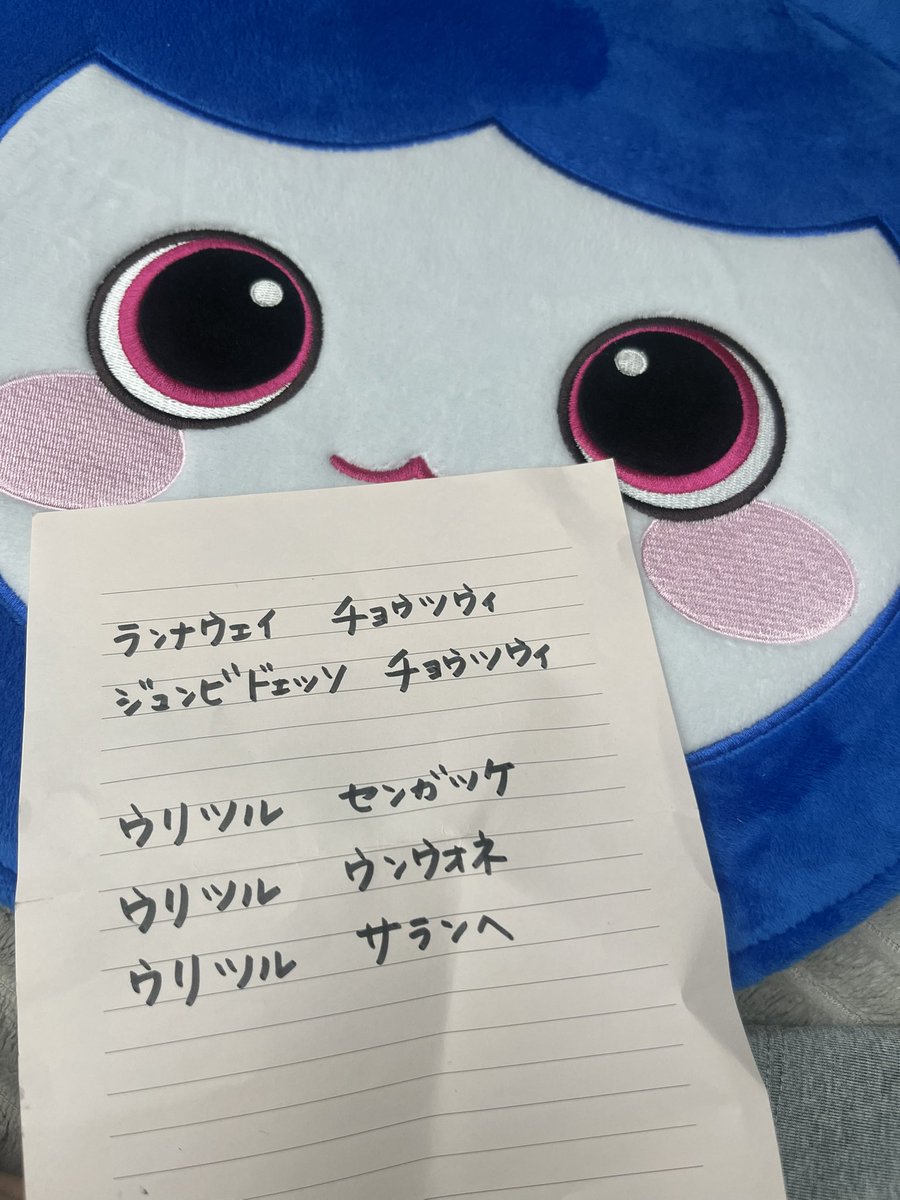 ランナウェイ チョウツウィ
ジュンビドェッソ チョウツウィ
ウリツル センガッケ
ウリツル ウンウォネ
ウリツル サランヘ